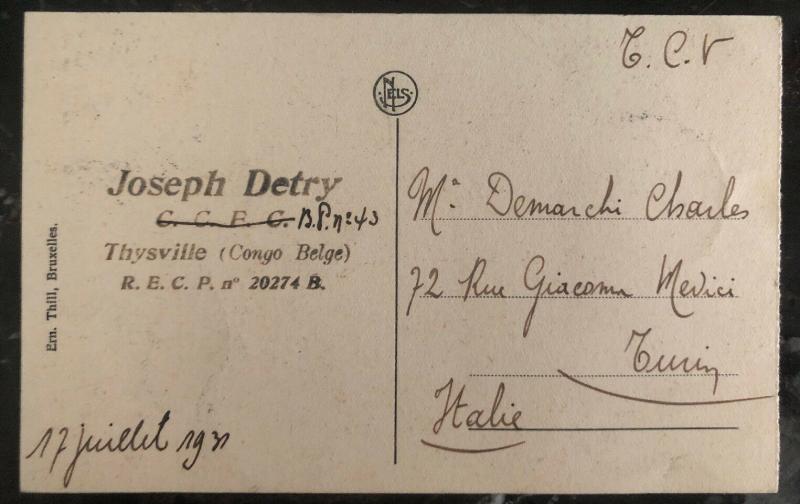 T. C. V
NELS
Joseph Detry
C. C. F. C. B.P. n° 43
Thysville (Congo Belge)
R. E. C. P. n° 20274 B.
Ern. Thill, Bruxelles.
17 juillet 1931
Mr Demarchi Charles
72 Rue Giacomo Medici
Turin
Italie